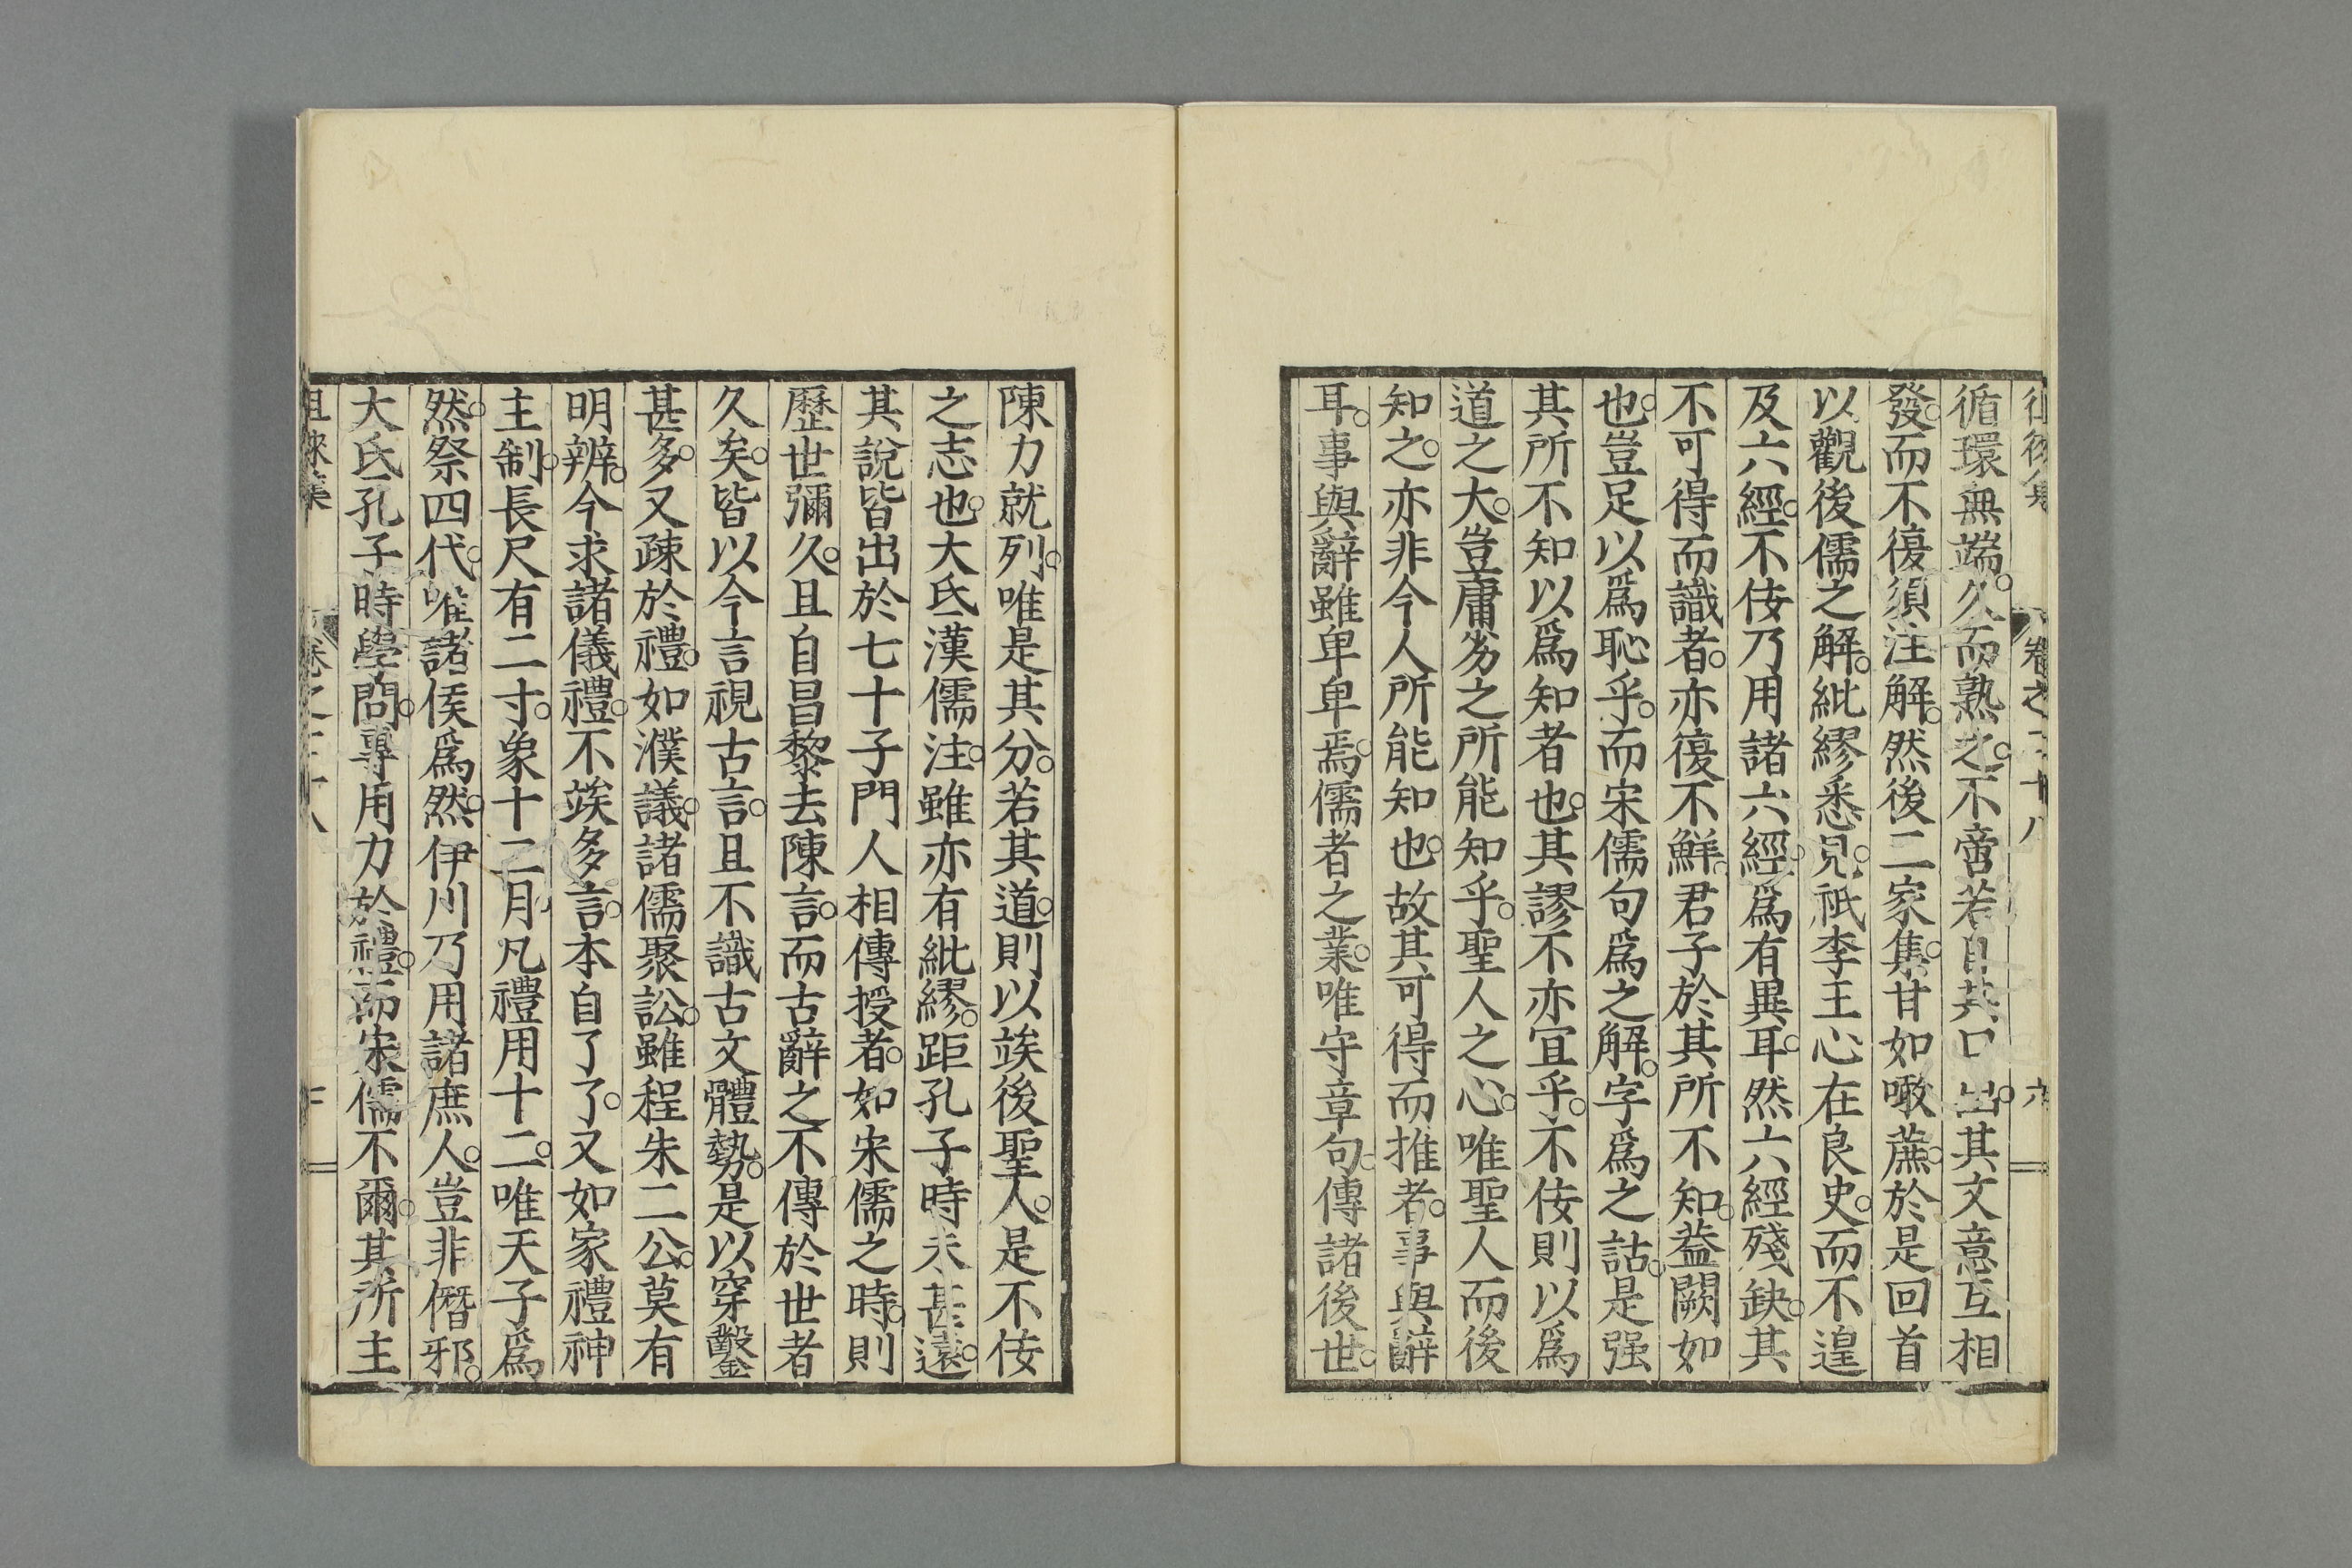 循環無端。久而熟之。不啻若自其口出。其文意互相
發。而不復須注解。然後二家集。甘如噉蔗。於是回首
以觀後儒之解。紕繆悉見。祇李王心在良史。而不遑
及六經。不佞乃用諸六經。爲有異耳。然六經殘缺。其
不可得而識者。亦復不鮮。君子於其所不知。葢闕如
也。豈足以爲恥乎。而宋儒句爲之解。字爲之詁。是强
其所不知以爲知者也。其謬不亦宜乎。不佞則以爲
道之大。豈庸劣之所能知乎。聖人之心。唯聖人而後
知之。亦非今人所能知也。故其可得而推者。事與辭
耳。事與辭雖卑卑焉。儒者之業。唯守章句。傳諸後世。
陳力就列。唯是其分。若其道。則以竢後聖人。是不佞
之志也。大氐漢儒注。雖亦有紕繆。距孔子時未甚遠。
其說皆出於七十子門人相傳授者。如宋儒之時。則
歷世彌久。且自昌黎去陳言。而古辭之不傳於世者
久矣。皆以今言視古言。且不識古文體勢。是以穿鑿
甚多。又疎於禮。如濮議。諸儒聚訟。雖程朱二公。莫有
明辨。今求諸儀禮。不竢多言。本自了了。又如家禮神
主制。長尺有二寸。象十二月。凡禮用十二。唯天子爲
然。祭四代。唯諸侯爲然。伊川乃用諸庶人。豈非僭邪。
大氐孔子時學問。專用力於禮。而宋儒不爾。其所主